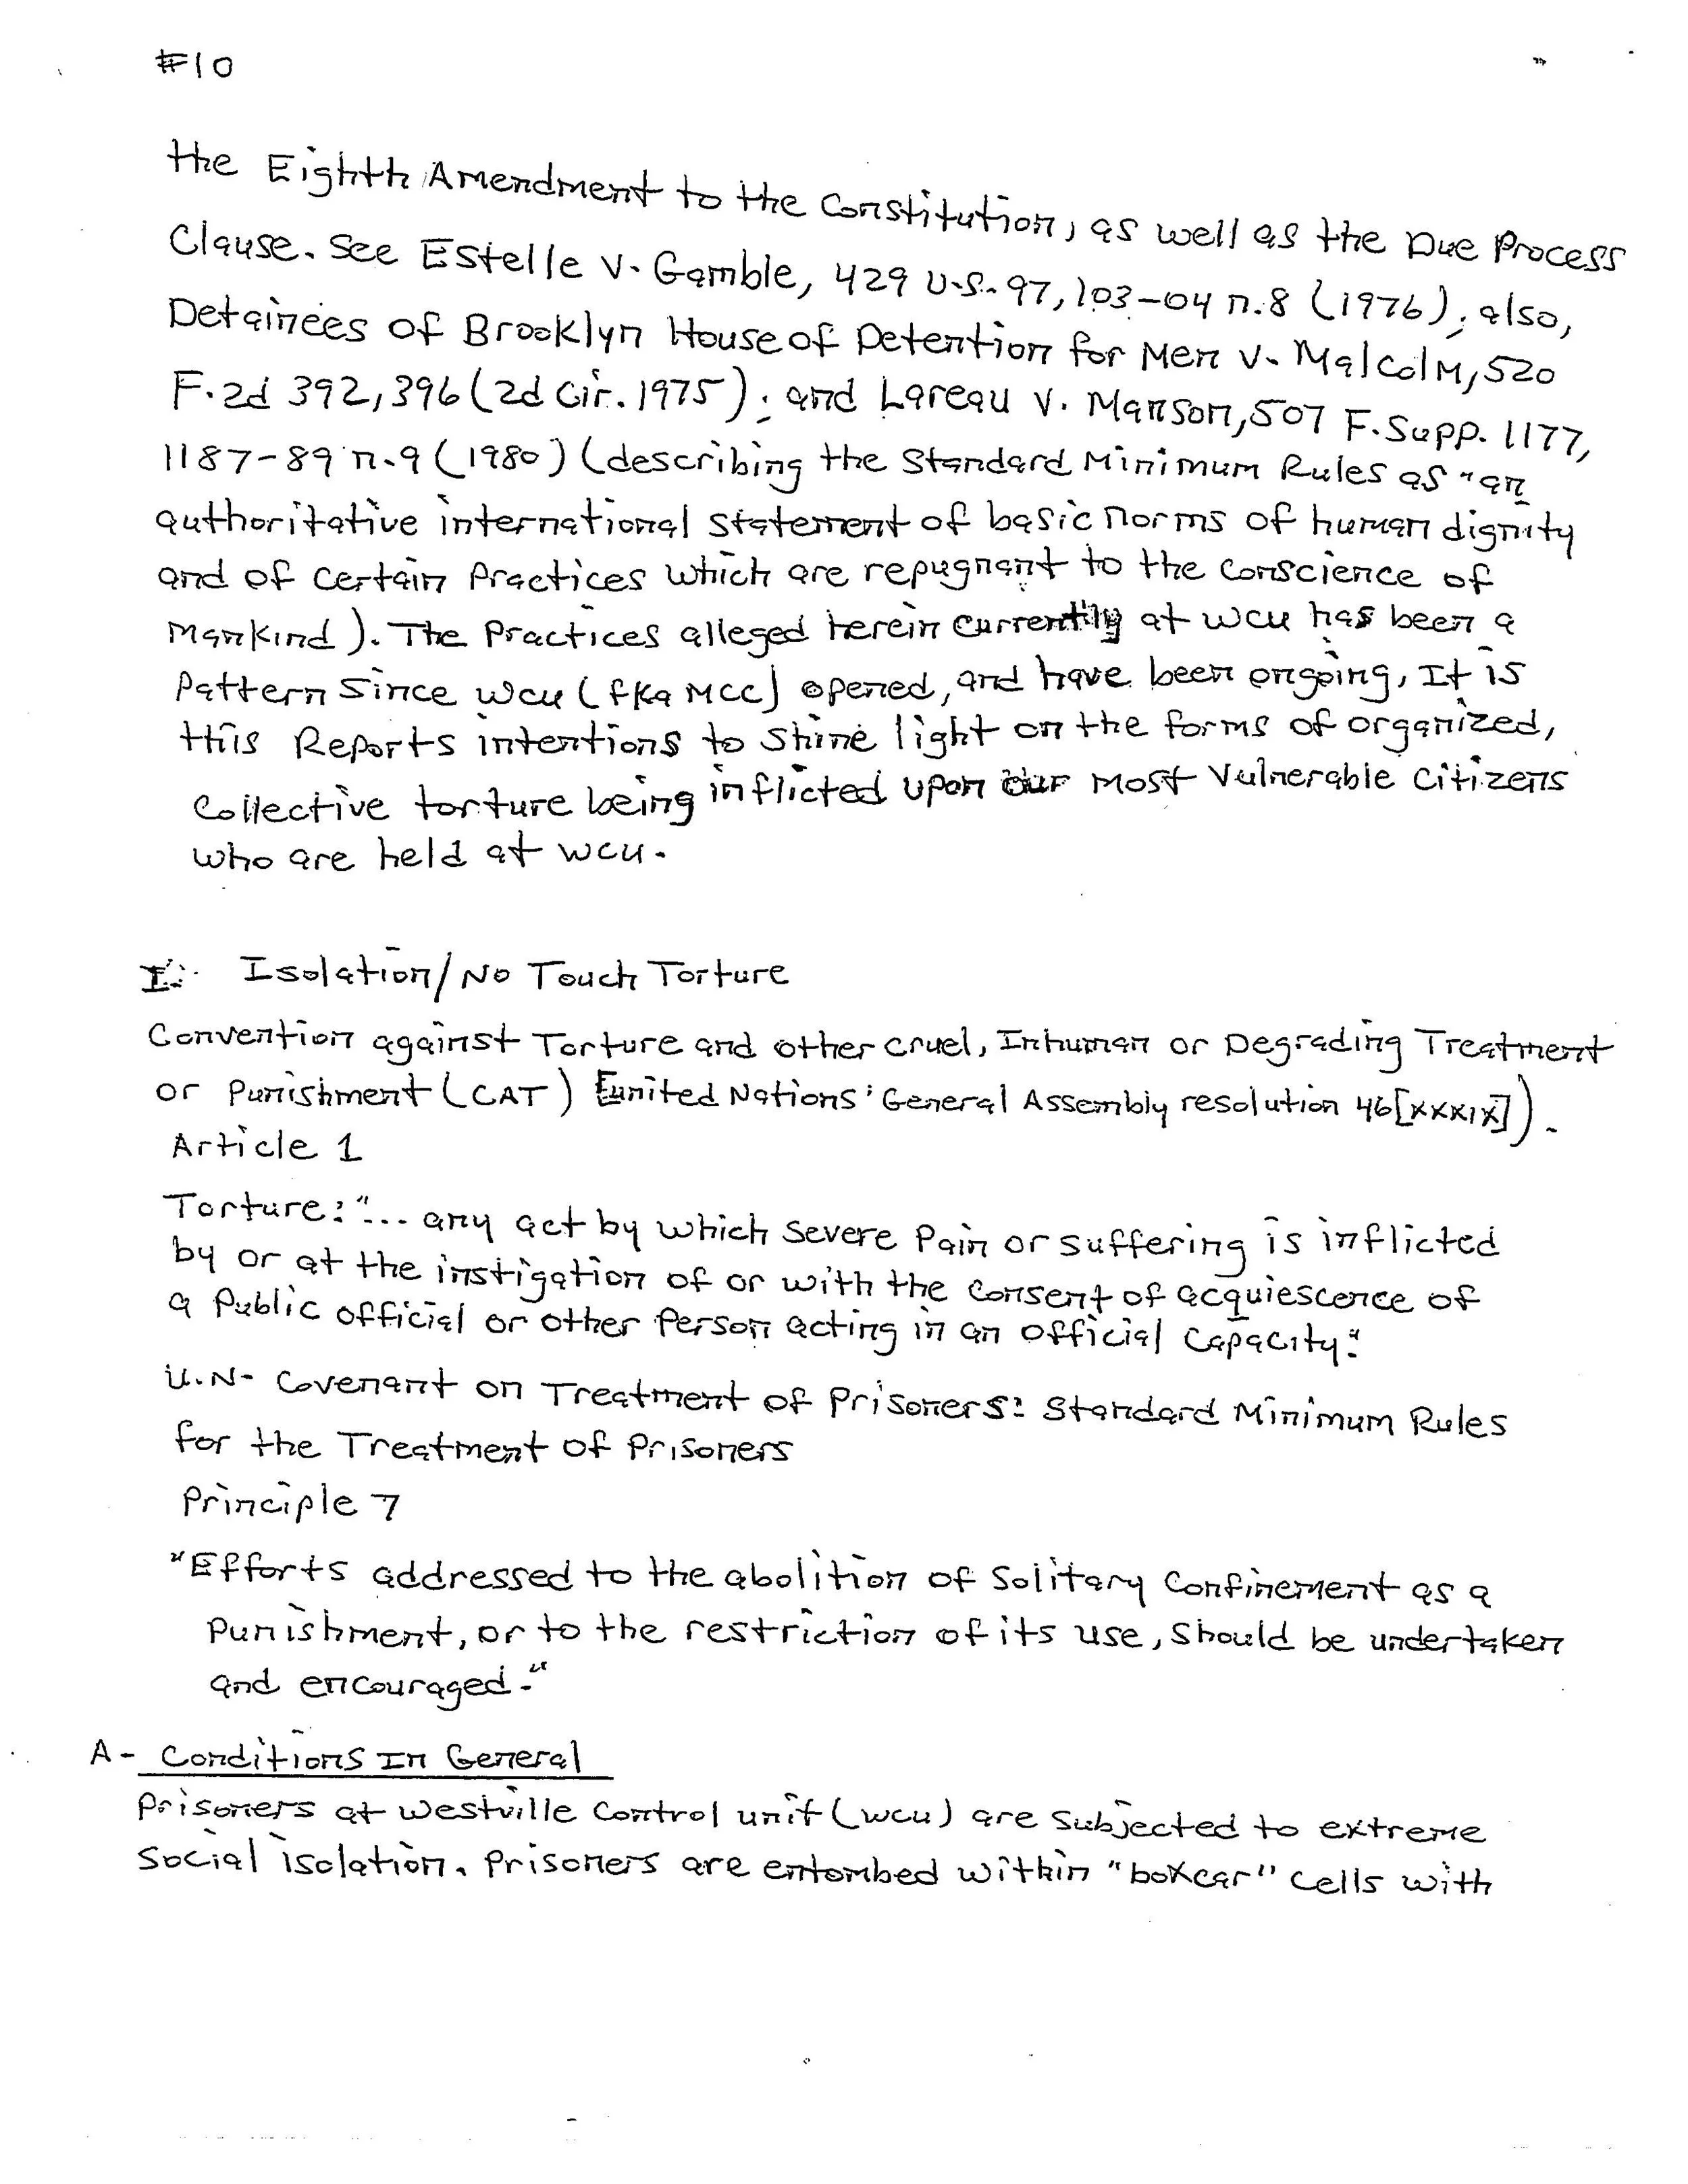 #10
the Eighth Amendment to the Constitution, as well as the Due Process
Clause. See Estelle v. Gamble, 429 U.S. 97, 103-04 n.8 (1976); also,
Detainees of Brooklyn House of Detention for Men v. Malcolm, 520
F.2d 392, 396 (2d Cir. 1975); and Lareau v. Manson, 507 F. Supp. 1177,
1187-89 n.9 (1980) (describing the Standard Minimum Rules as "an
authoritative international statement of basic norms of human dignity
and of certain Practices which are repugnant to the conscience of
Mankind). The Practices alleged herein currently at WCU has been a
Pattern Since WCU (fka MCC) opened, and have been ongoing, It is
this Reports intentions to shine light on the forms of organized,
Collective torture being inflicted upon our most vulnerable citizens
who are held at WCU.
I. Isolation/No Touch Torture
Convention against Torture and other cruel, Inhuman or Degrading Treatment
or Punishment (CAT) [United Nations' General Assembly resolution 46[XXXIX]).
Article 1
Torture: "... any act by which severe Pain or suffering is inflicted
by or at the instigation of or with the consent of acquiescence of
a Public official or other Person acting in an official Capacity."
U.N. Covenant on Treatment of Prisoners: Standard Minimum Rules
for the Treatment of Prisoners
Principle 7
"Efforts addressed to the abolition of Solitary Confinement as a
Punishment, or to the restriction of its use, should be undertaken
and encouraged."
A- Conditions In General
Prisoners at Westville Control unit (WCU) are subjected to extreme
Social isolation. Prisoners are entombed within "boxcar" cells with